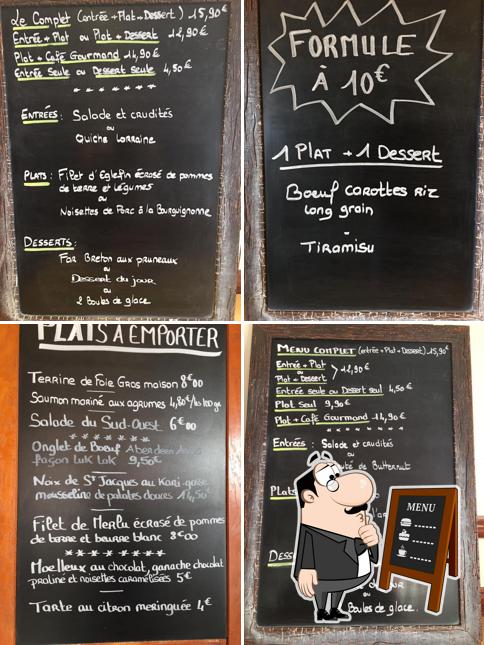 Le Complet (entrée+Plat+Dessert) 15,90€
Entrée+Plat ou Plat+Dessert 12,90€
Plat+Café Gourmand 14,90€
Entrée Seule ou Dessert seule 4,50€
Entrées: Salade et crudités
ou
Quiche Lorraine
Plats: Filet d'Eglefin écrasé de pommes
de terre et légumes
ou
Noisettes de Porc à la Bourguignonne
Desserts:
Far Breton aux pruneaux
ou
Dessert du jour
ou
2 Boules de glace
FORMULE
À 10€
1 Plat + 1 Dessert
Boeuf carottes riz
long grain
-
Tiramisu
PLATS A EMPORTER
Terrine de Foie Gras maison 8€00
Saumon mariné aux agrumes 4,80€/les 100 gr
Salade du Sud-Ouest 6€00
Onglet de Boeuf Aberdeen
façon Luk Lak 9,50€
Noix de St Jacques au Kari-gosse
mousseline de patates douces 14,50
Filet de Merlu écrasé de pommes
de terre et beurre blanc 8€00
Moelleux au chocolat, ganache chocolat
praliné et noisettes caramélisées 5€
Tarte au citron meringuée 4€
Menu Complet (entrée+Plat+Dessert) 15,90€
Entrée+Plat
ou
Plat+Dessert > 12,90€
Entrée seule ou Dessert seul 4,50€
Plat Seul 9,90€
Plat+Café Gourmand 14,90€
Entrées: Salade et crudités
ou
de Butternut
Plats
MENU
Boules de glace.